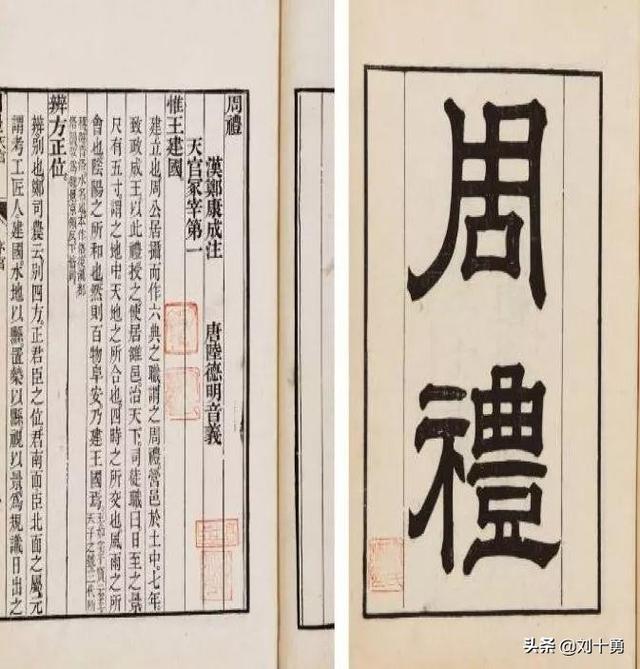 周禮
漢鄭康成注
唐陸德明音義
天官冢宰第一
惟王建國
建立也周公居攝而作六典之職謂之周禮營邑於土中七年
致政成王以此禮授之使居雒邑治天下司徒職曰日至之景
尺有五寸謂之地中天地之所合也四時之所交也風雨之所
會也陰陽之所和也然則百物阜安乃建王國焉
辨方正位
辨別也鄭司農云別四方正君臣之位君南面臣北面之屬元
謂考工匠人建國水地以縣置槷以縣視以景為規識日出之
周禮
头条 @刘十勇